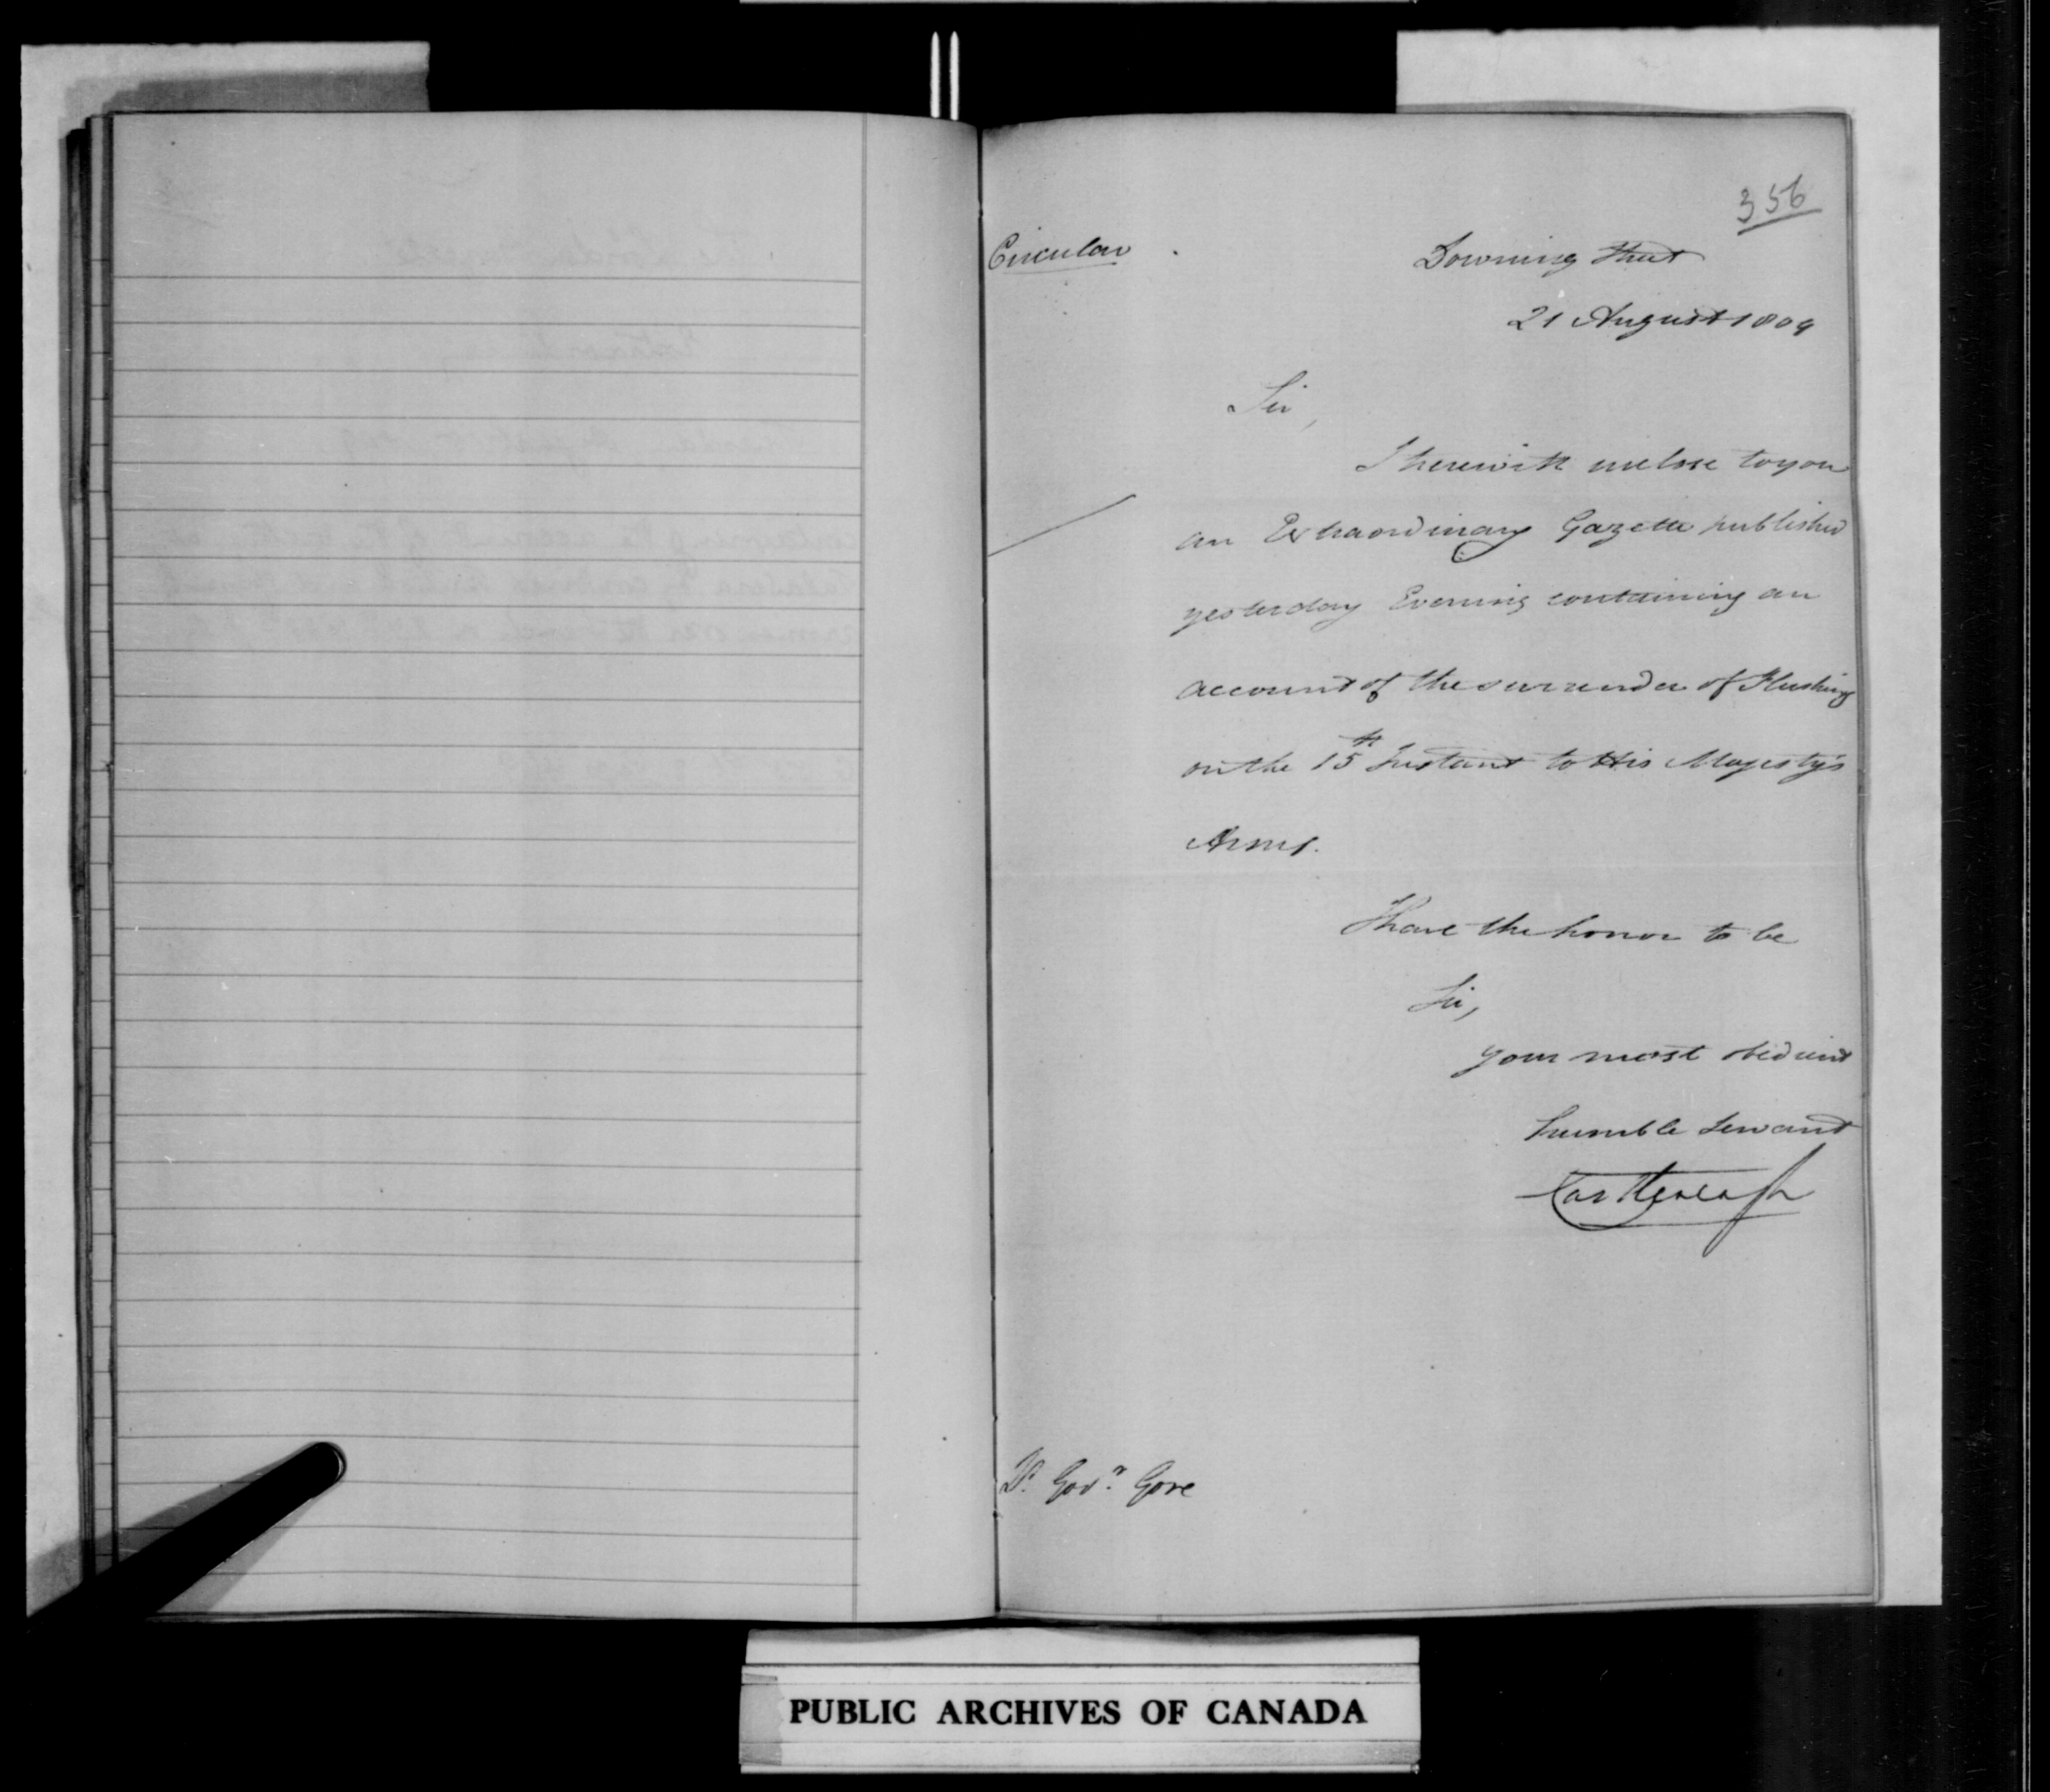 356
Circular
Downing Street
21 August 1809
Sir,
I herewith inclose to you
an Extraordinary Gazette published
yesterday Evening containing an
account of the surrender of Flushing
on the 15th Instant to His Majesty's
Arms.
I have the honor to be
Sir,
your most obedient
humble servant
Castlereagh
Lt. Govr. Gore
PUBLIC ARCHIVES OF CANADA